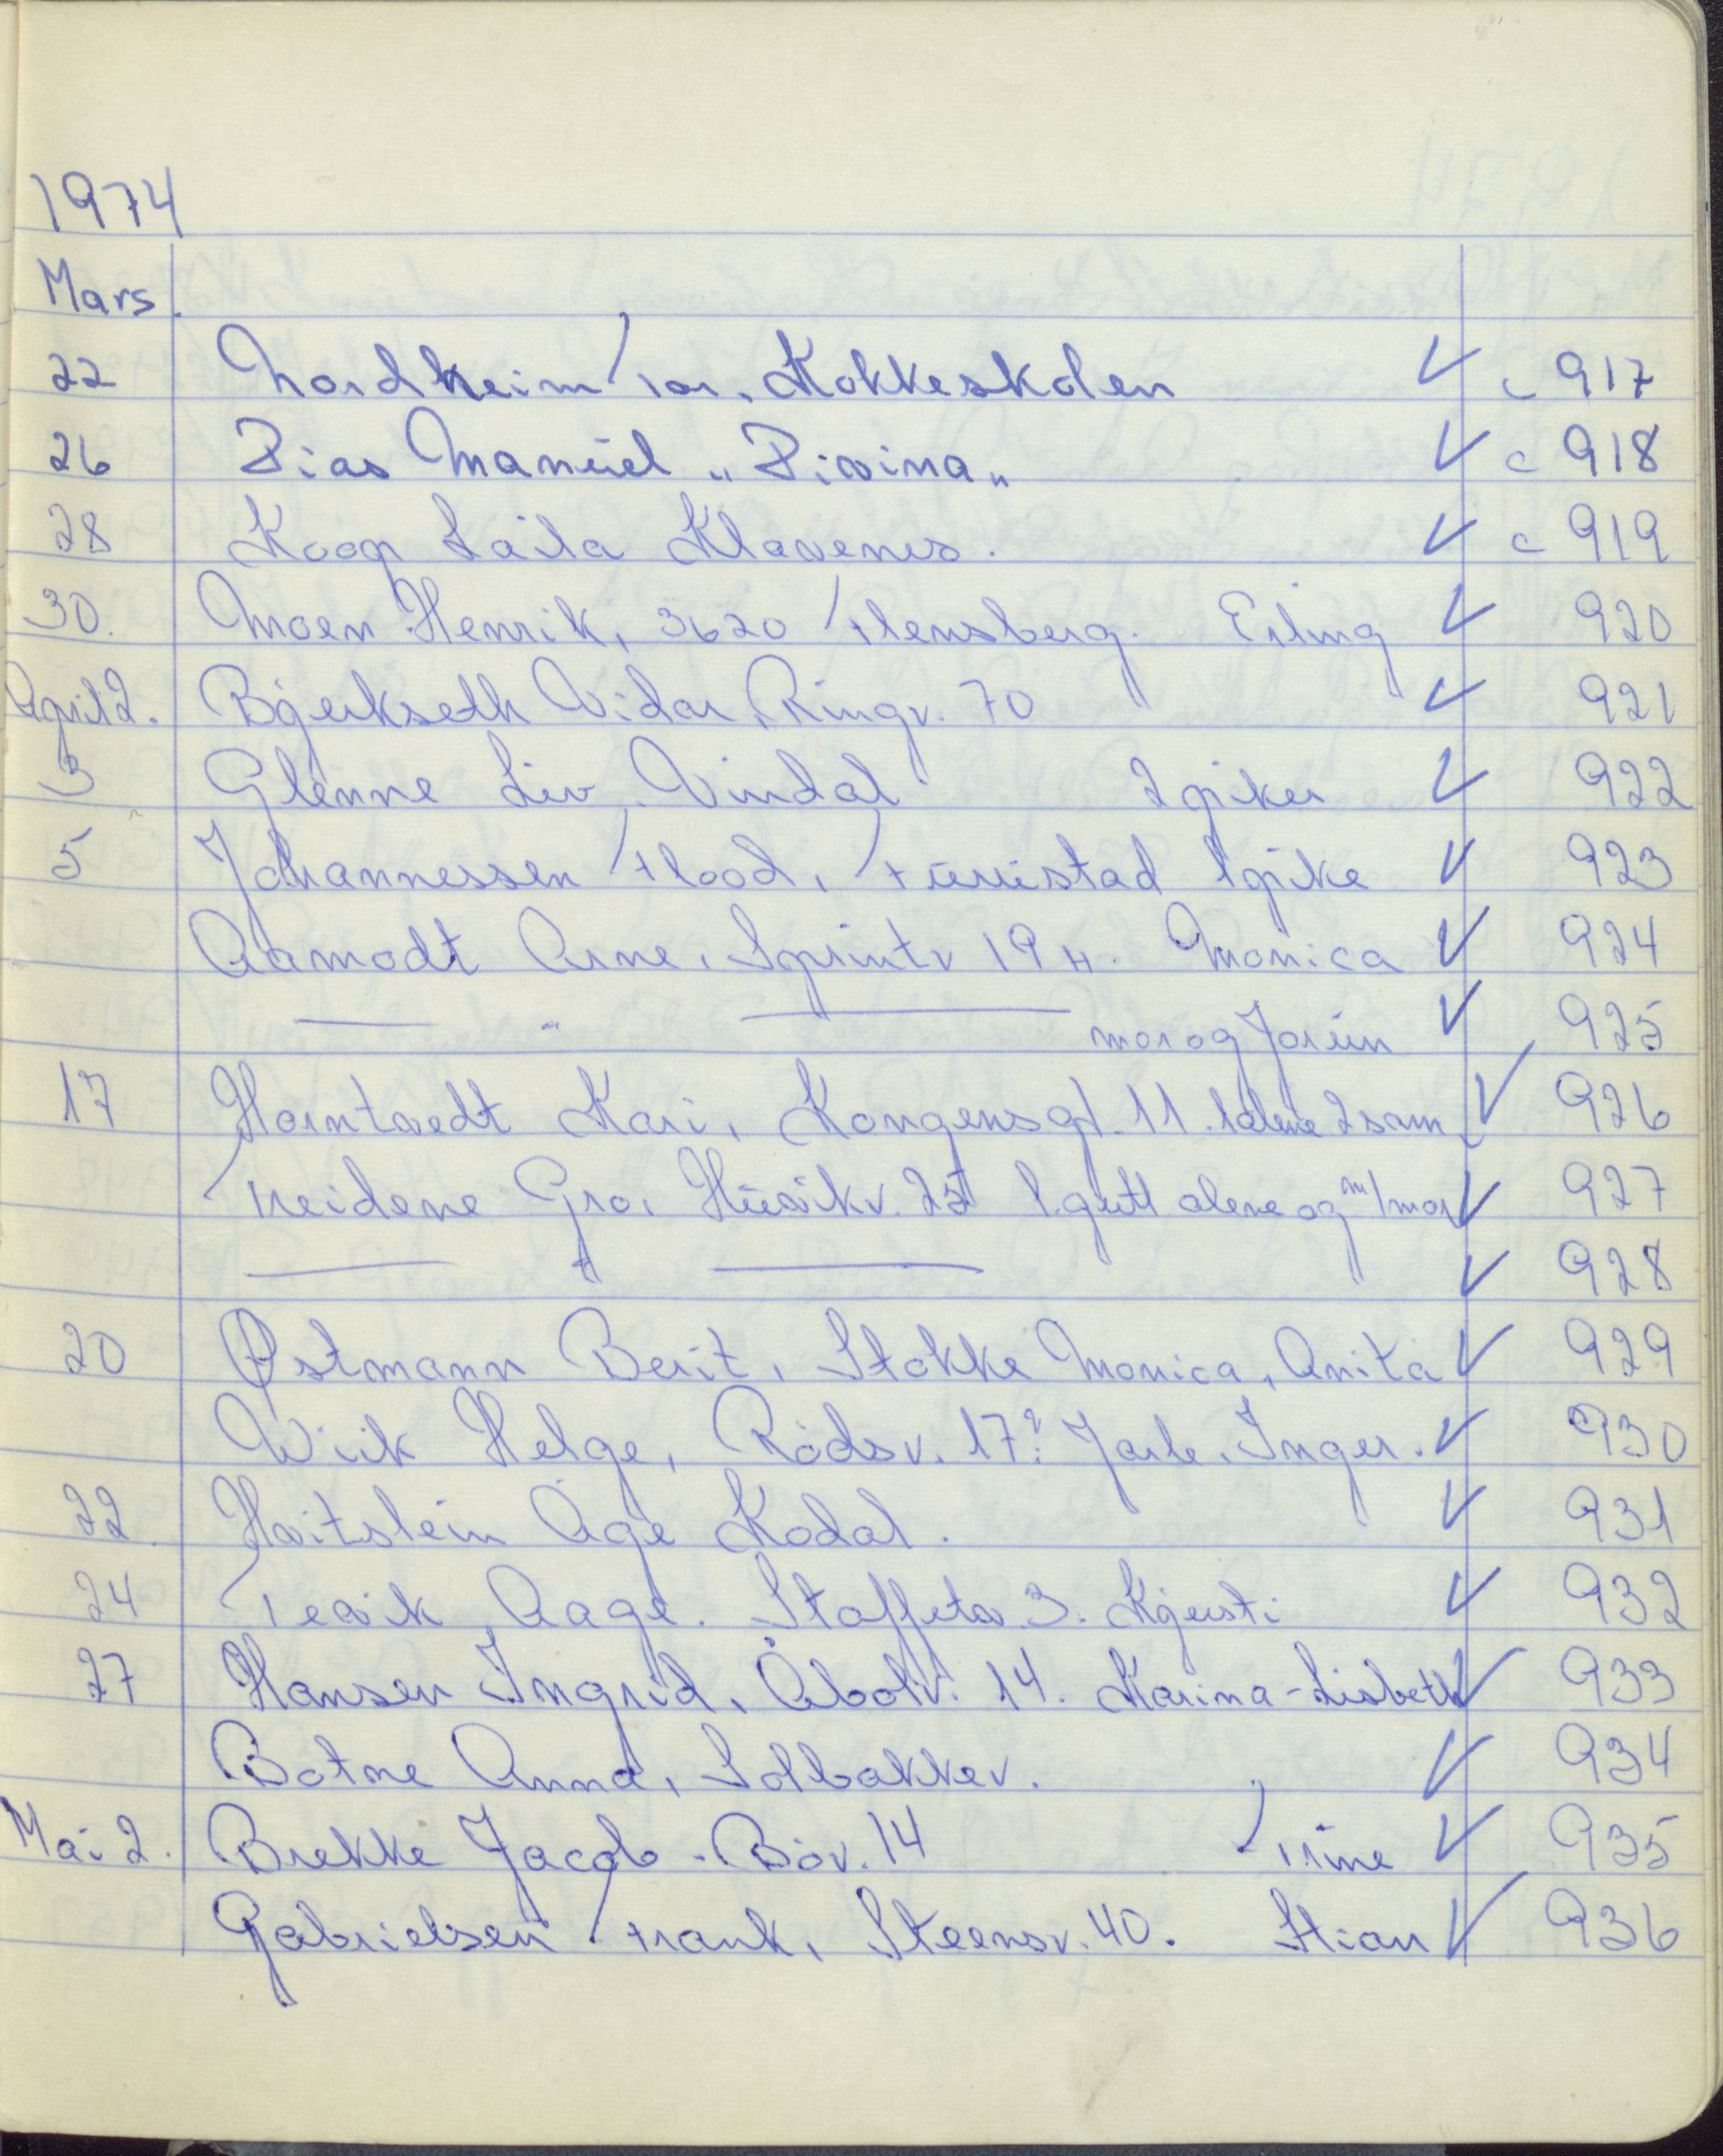 1974
Mars.
22 Nordheim Tor. Kokkeskolen ✓ c 917
26 Dias Manuel „Divina„ ✓ c 918
28 Koop Laila Klavenes. ✓ c 919
30. Moen Henrik, 3620 Flensberg. Erling ✓ 920
April 2. Bjerkseth Vidar, Ringv. 70 ✓ 921
3 Glenne Liv, Vindal 2 piker ✓ 922
5 Johannessen Flood, Furustad 1 pike ✓ 923
Aamodt Arne, Sprintv 19 H. Monica ✓ 924
— " — mor og Jorun ✓ 925
17 Horntvedt Kari, Kongensgt. 11. 1 alene 2 sam ✓ 926
Treidene Gro, Husvikv. 25 1 gutt alene og m/mor ✓ 927
— + — ✓ 928
20 Østmann Berit, Stokke Monica, Anita ✓ 929
Wiik Helge, Rødsv. 17? Jarle, Inger. ✓ 930
22. Hvitstein Åge Kodal. ✓ 931
24 Tesvik Aage. Stafettv. 3. Kjersti ✓ 932
27 Hansen Ingrid, Åbolv. 14. Karina-Lisbeth ✓ 933
Botne Anna, Solbakkev. ✓ 934
Mai 2. Brekke Jacob. Bøv. 14 Trine ✓ 935
Gabrielsen Frank, Steensv. 40. Stian ✓ 936